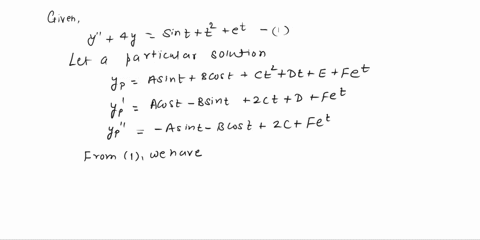 Given,
y'' + 4y = sint + t² + eᵗ - (1)
Let a particular solution
yₚ = Asint + Bcost + Ct² + Dt + E + Feᵗ
yₚ' = Acost - Bsint + 2Ct + D + Feᵗ
yₚ'' = -Asint - Bcost + 2C + Feᵗ
From (1), we have